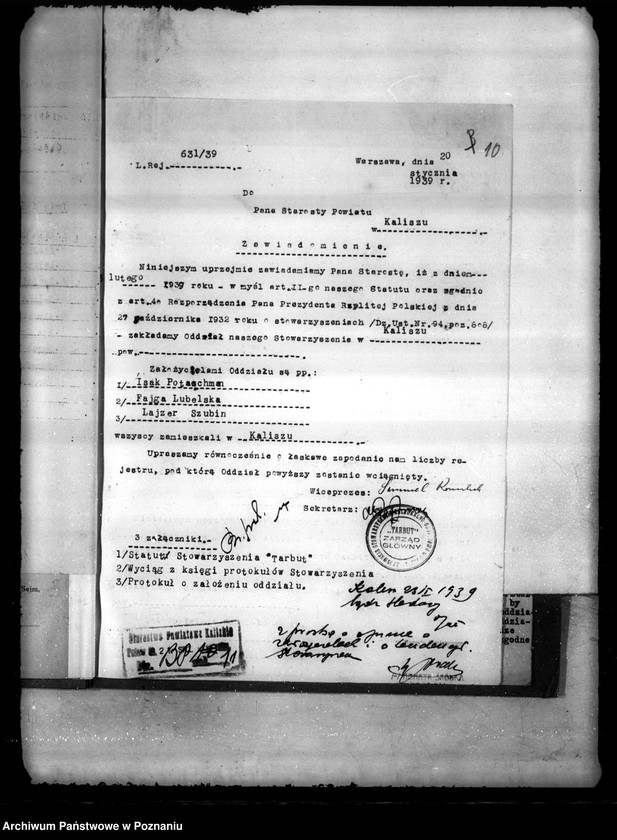 10
631/39
L.Rej.
Warszawa, dnia 20
stycznia
1939 r.
Do
Pana Starosty Powiatu
w Kaliszu
Zawiadomienie.
Niniejszym uprzejmie zawiadamiamy Pana Starostę, iż z dniem
lutego 1939 roku - w myśl art.II-go naszego Statutu oraz zgodnie
z art. Rozporządzenia Pana Prezydenta Rzplitej Polskiej z dnia
27 października 1932 roku o stowarzyszeniach /Dz.Ust.Nr.94.poz.808/
- zakładamy Oddział naszego Stowarzyszenia w Kaliszu
pow.
Założycielami Oddziału są pp.:
1/ Isak Potaschman
2/ Fajga Lubelska
3/ Lajzer Szubin
wszyscy zamieszkali w Kaliszu
Upraszamy równocześnie o łaskawe zapodanie nam liczby re-
jestru, pod którą Oddział powyższy zostanie wciągnięty.
Wiceprezes:
Sekretarz:
"TARBUT"
ZARZĄD
GŁÓWNY
3 załączniki.
1/Statut Stowarzyszenia "Tarbut"
2/Wyciąg z księgi protokułów Stowarzyszenia
3/Protokuł o założeniu oddziału.
1939
Starostwo Powiatowe Kaliskie
Seim.
by
Archiwum Państwowe w Poznaniu